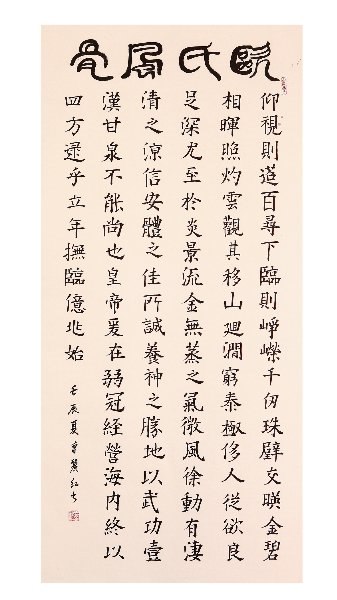 歐氏風骨
仰視則百尋下臨則崢嶸千仞珠璧交暎金碧
相暉照灼雲觀其移山廻澗窮泰極侈人從欲良
足深尤至於炎景流金無蒸之氣微風徐動有淒
清之凉信安體之佳所誠養神之勝地以武功壹
漢甘泉不能尚也皇帝爰在弱冠経營海内終以
四方逮乎立年撫臨億兆始
壬辰夏曾紅书